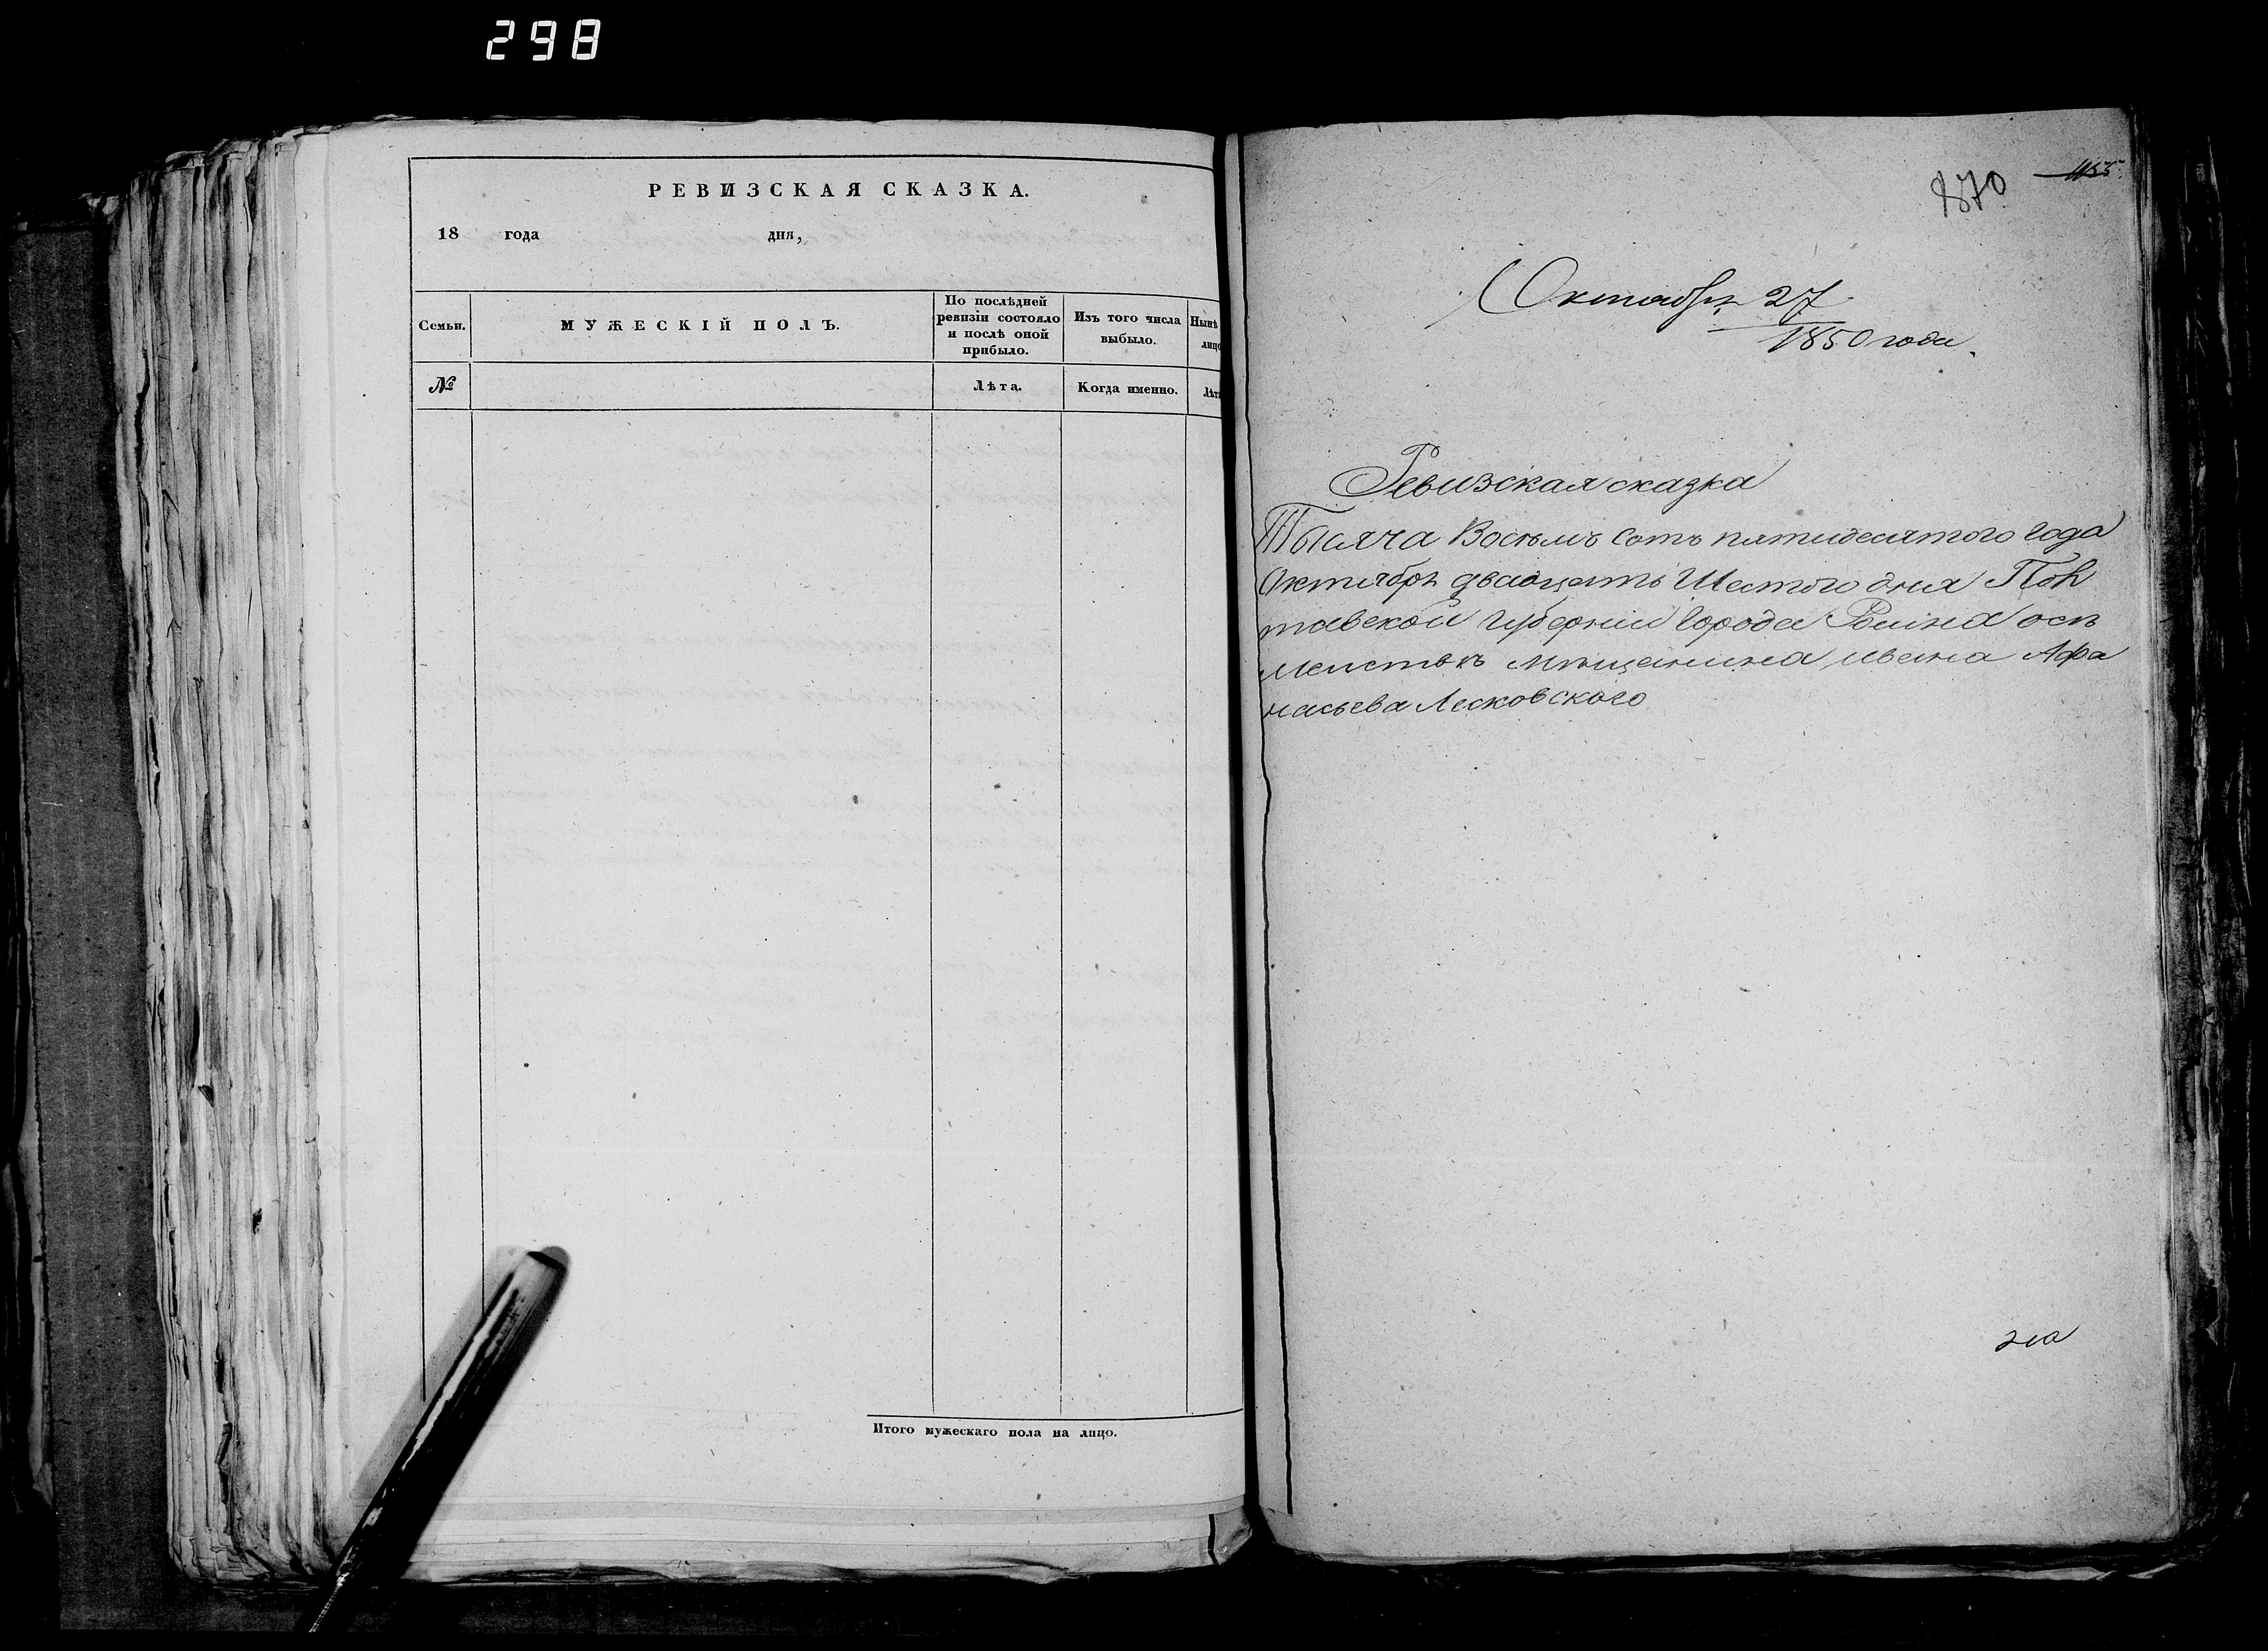 298
РЕВИЗСКАЯ СКАЗКА.
18 года дня,
Семьи.
МУЖЕСКІЙ ПОЛЪ.
По послѣдней
ревизіи состояло
и послѣ оной
прибыло.
Изъ того числа
выбыло.
Нынѣ
лицо
№
Лѣта.
Когда именно.
Лѣта
Итого мужескаго пола на лицо.
1155.
870
Октября 27
1850 года.
Ревизская сказка
Тысяча Восемъ сотъ пятидесятого года
Октября двадцать Шестого дня Пол
тавской Губернии Города
мещанина ивана Афа
насьева Лесковского